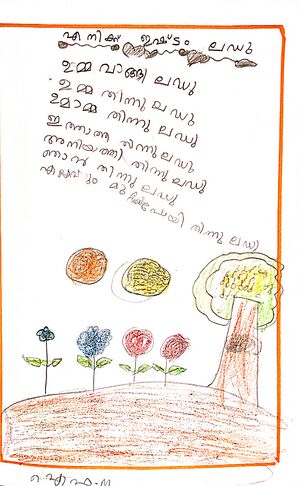 എനിക്ക് ഇഷ്ടം ലഡു
ഉമ്മ വാങ്ങി ലഡു
ഉമ്മ തിന്നു ലഡു
ഉമാമ്മ തിന്നു ലഡു
ഇത്താത്ത തിന്നു ലഡു
അനിയത്തി തിന്നു ലഡു
ഞാൻ തിന്നു ലഡു
എല്ലാവരും തിന്നു ലഡു